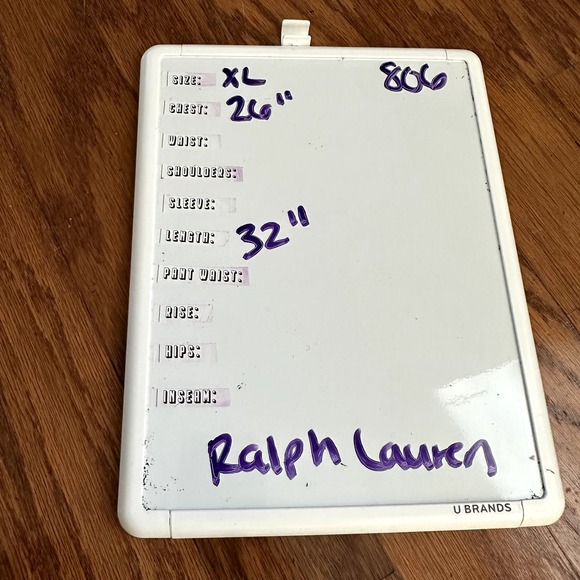 SIZE: XL 806
CHEST: 26"
WAIST:
SHOULDERS:
SLEEVE:
LENGTH: 32"
PANT WAIST:
RISE:
HIPS:
INSEAM:
Ralph Lauren
U BRANDS